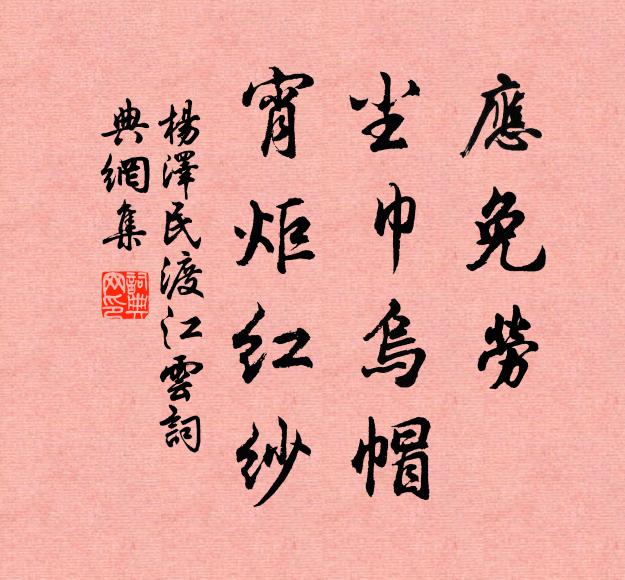 應免勞
尘巾烏帽
宵炬红纱
楊澤民渡江雲詞
典網集
詞典
网印